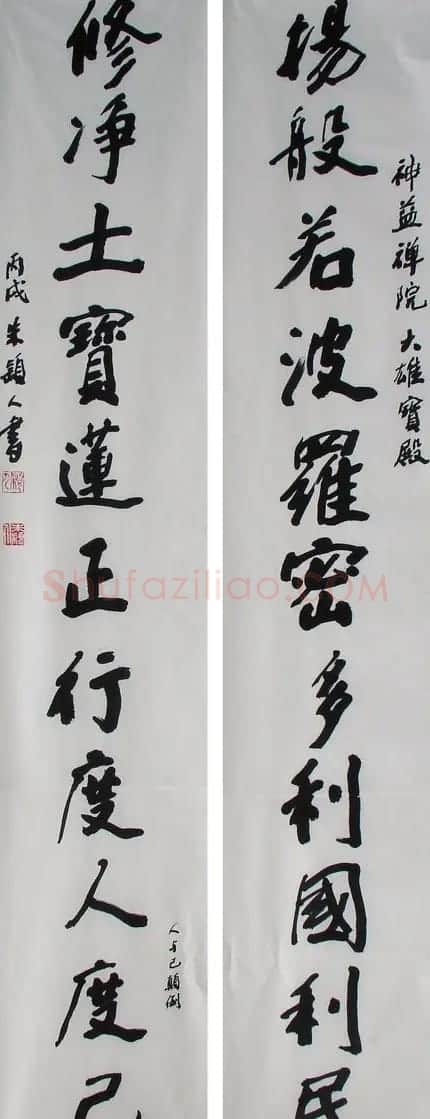 神益禅院 大雄寶殿
揚般若波羅密多利國利民
修净土寶蓮正行度人度己
人与己顛倒
丙戌 朱穎人書
Shufaziliao.COM